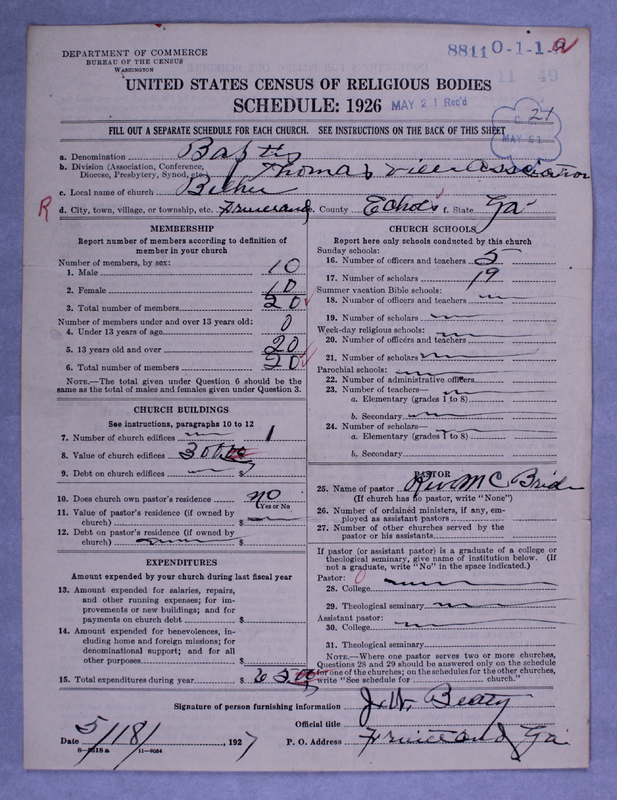 88110-1-1-a
DEPARTMENT OF COMMERCE
BUREAU OF THE CENSUS
WASHINGTON
UNITED STATES CENSUS OF RELIGIOUS BODIES
SCHEDULE: 1926
MAY 21 Rec'd
FILL OUT A SEPARATE SCHEDULE FOR EACH CHURCH. SEE INSTRUCTIONS ON THE BACK OF THIS SHEET
24
MAY 21
a. Denomination Baptis
b. Division (Association, Conference, Diocese, Presbytery, Synod, etc.) Thomas ville Association
c. Local name of church
R d. City, town, village, or township, etc. e. County Echols f. State Ga
MEMBERSHIP
Report number of members according to definition of
member in your church
Number of members, by sex:
1. Male 10
2. Female 10
3. Total number of members 20
Number of members under and over 13 years old:
4. Under 13 years of age 0
5. 13 years old and over 20
6. Total number of members 20
NOTE.—The total given under Question 6 should be the
same as the total of males and females given under Question 3.
CHURCH BUILDINGS
See instructions, paragraphs 10 to 12
7. Number of church edifices 1
8. Value of church edifices 300.00
9. Debt on church edifices $
10. Does church own pastor's residence no
Yes or No
11. Value of pastor's residence (if owned by
church) $
12. Debt on pastor's residence (if owned by
church) $
EXPENDITURES
Amount expended by your church during last fiscal year
13. Amount expended for salaries, repairs,
and other running expenses; for im-
provements or new buildings; and for
payments on church debt $
14. Amount expended for benevolences, in-
cluding home and foreign missions; for
denominational support; and for all
other purposes $
15. Total expenditures during year $ 65.00
CHURCH SCHOOLS
Report here only schools conducted by this church
Sunday schools:
16. Number of officers and teachers 5
17. Number of scholars 19
Summer vacation Bible schools:
18. Number of officers and teachers
19. Number of scholars
Week-day religious schools:
20. Number of officers and teachers
21. Number of scholars
Parochial schools:
22. Number of administrative officers
23. Number of teachers—
a. Elementary (grades 1 to 8)
b. Secondary
24. Number of scholars—
a. Elementary (grades 1 to 8)
b. Secondary
PASTOR
25. Name of pastor Rev Mc Bride
(If church has no pastor, write "None")
26. Number of ordained ministers, if any, em-
ployed as assistant pastors
27. Number of other churches served by the
pastor or his assistants
If pastor (or assistant pastor) is a graduate of a college or
theological seminary, give name of institution below. (If
not a graduate, write "No" in the space indicated.)
Pastor: 0
28. College
29. Theological seminary
Assistant pastor:
30. College
31. Theological seminary
NOTE.—Where one pastor serves two or more churches,
Questions 28 and 29 should be answered only on the schedule
for one of the churches; on the schedules for the other churches,
write "See schedule for church."
Signature of person furnishing information J. W. Beaty
Official title
Date 5/18/, 1927 P. O. Address Ga
8-8618a 11-9064